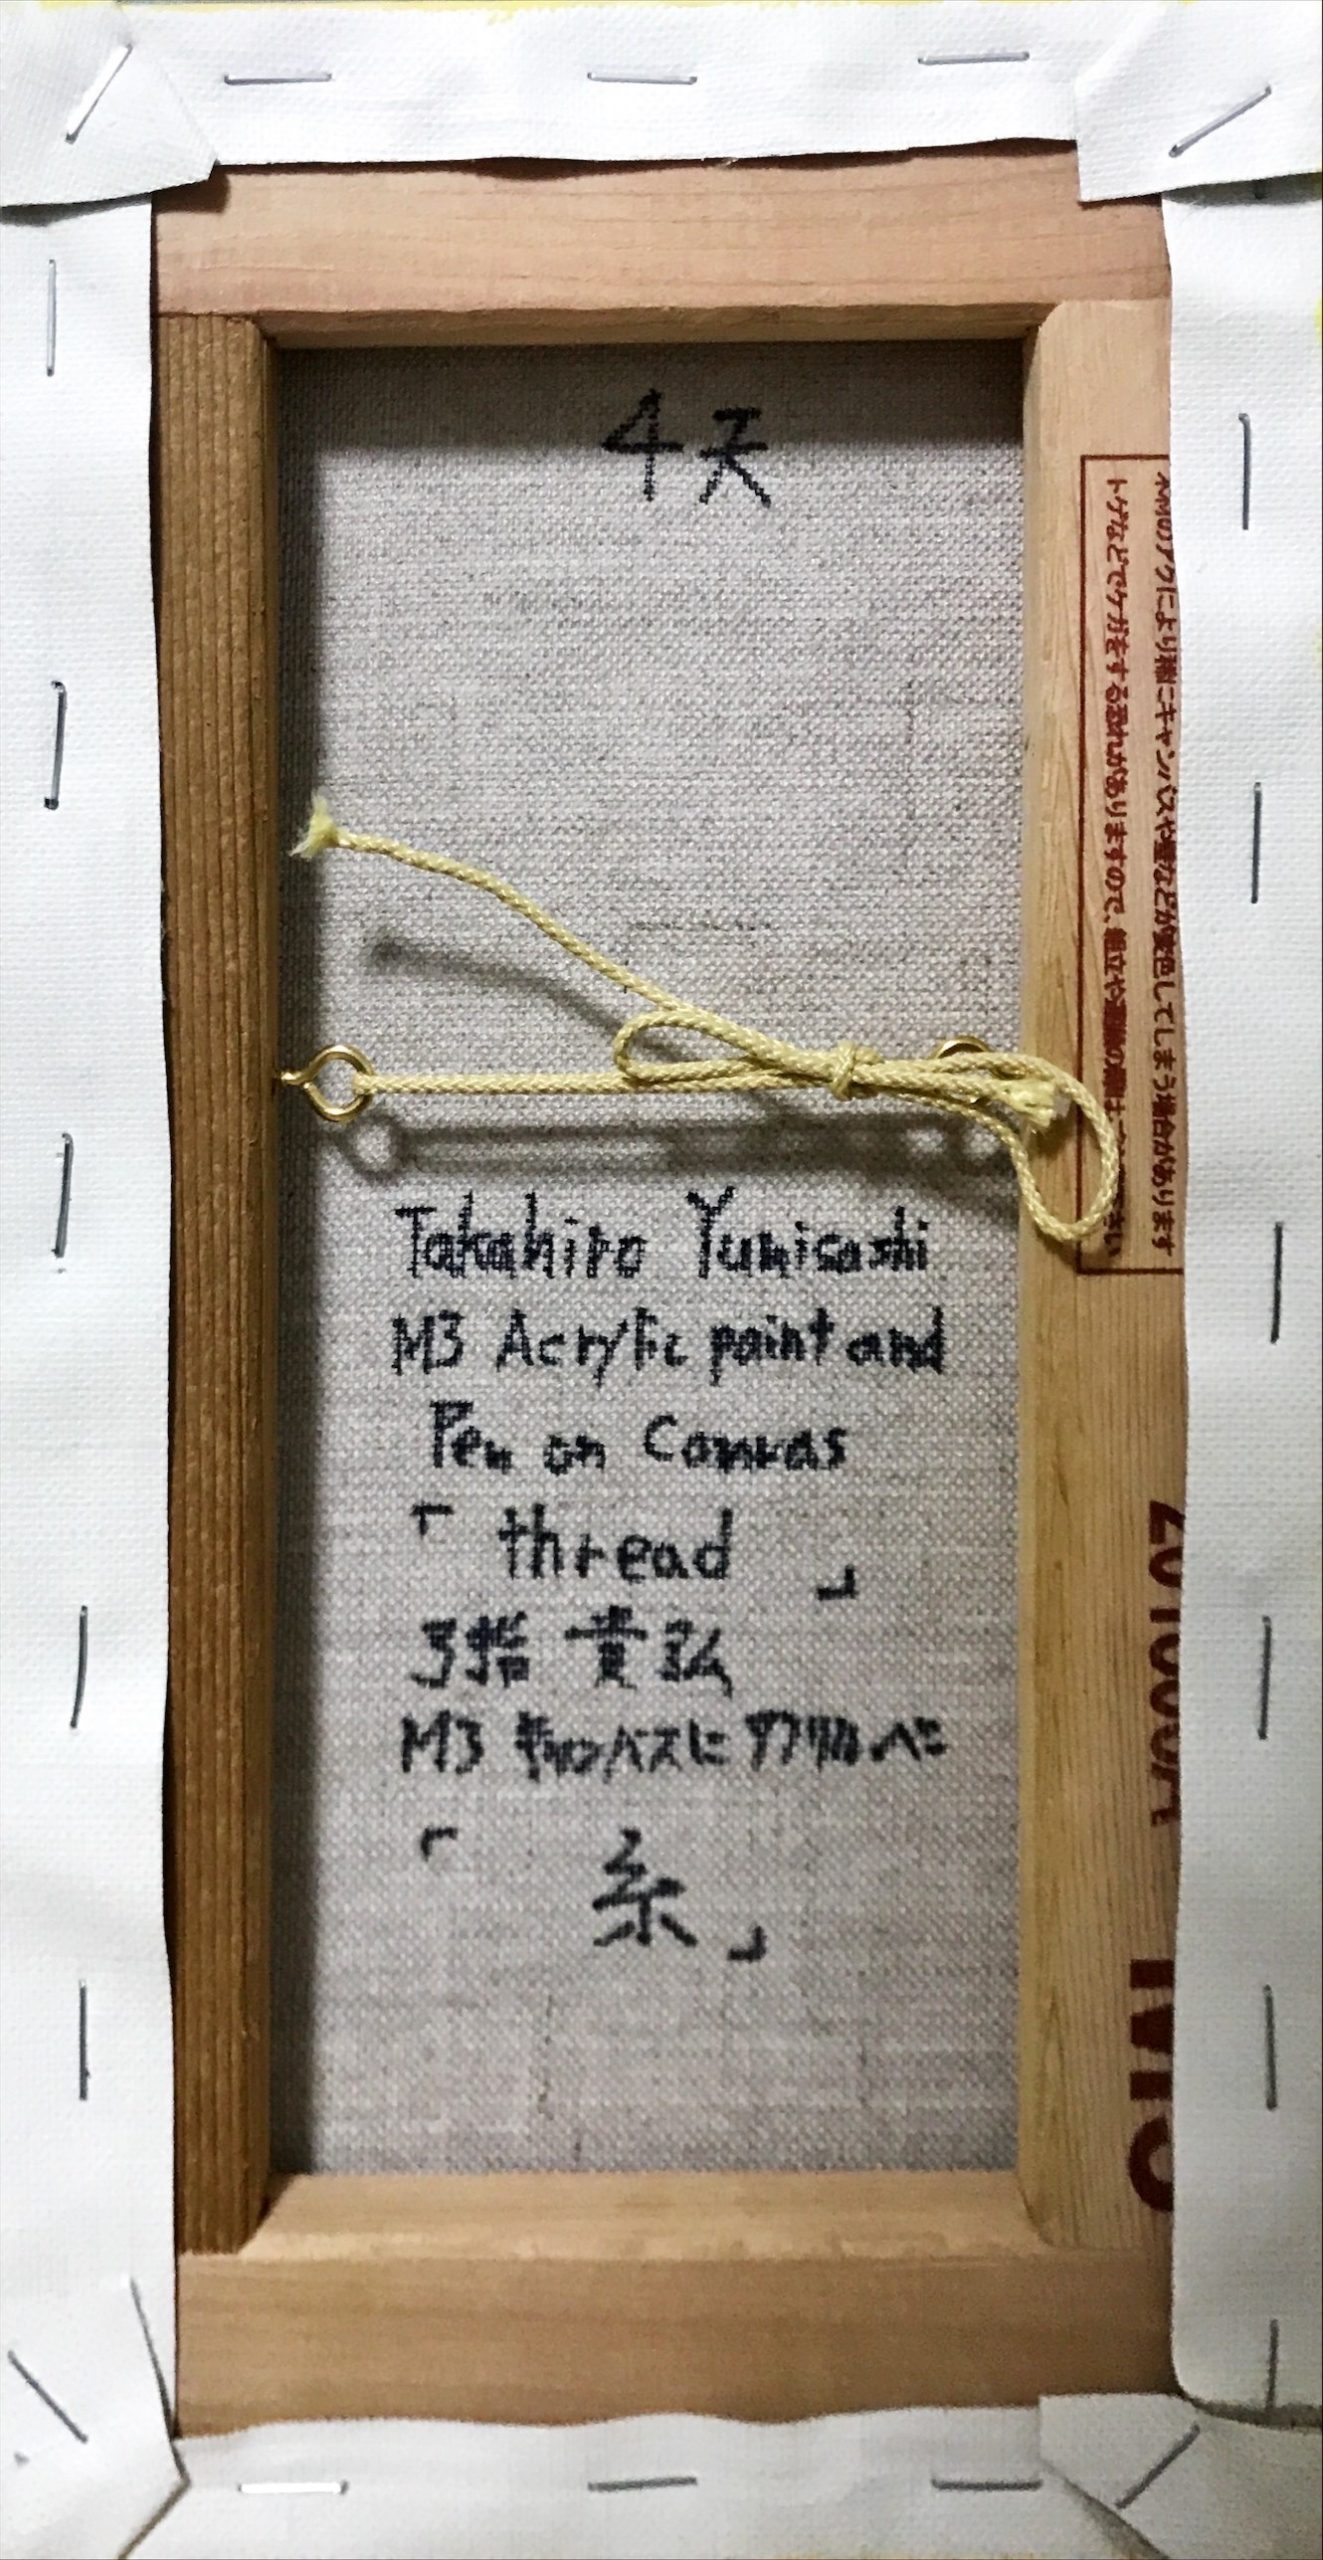 4天
Takahiro Yumisashi
M3 Acrylic paint and
Pen on Canvas
「thread」
弓指 貴弘
M3 キャンバスにアクリル、ペン
「糸」
のアクにより稀にキャンバスや壁などが変色してしまう場合があります
トゲなどでケガをする恐れがありますので、組立や
M3